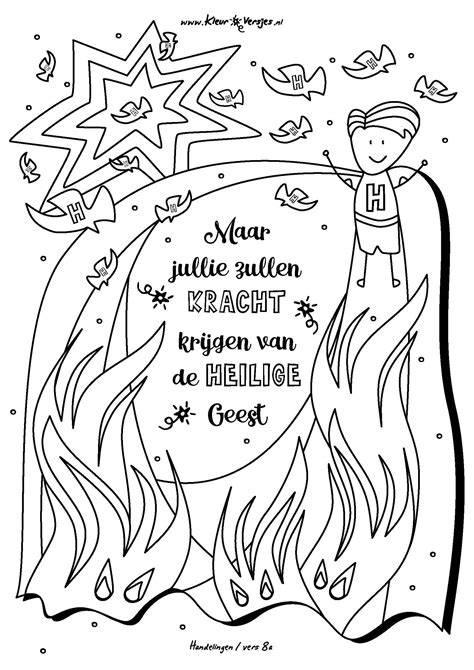 www.Kleur & Versjes.nl
H
H
H
H
H
H
H
H
H
H
H
Maar
jullie zullen
KRACHT
krijgen van
de HEILIGE
Geest
Handelingen 1 vers 8a